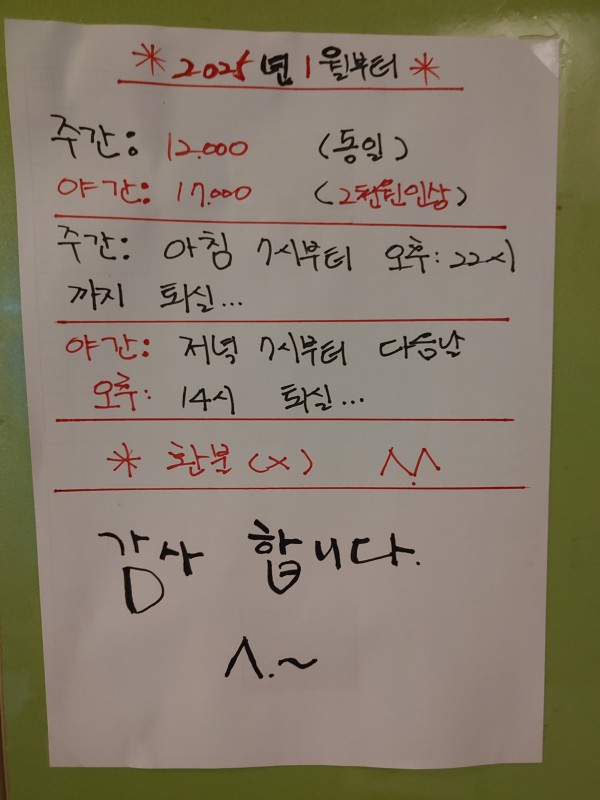 * 2025년 1월부터 *
주간: 12.000 (동일)
야간: 17.000 (2천원인상)
주간: 아침 7시부터 오후: 22시
까지 퇴실...
야간: 저녁 7시부터 다음날
오후: 14시 퇴실...
* 환불 (x) ^.^
감사 합니다.
^.~